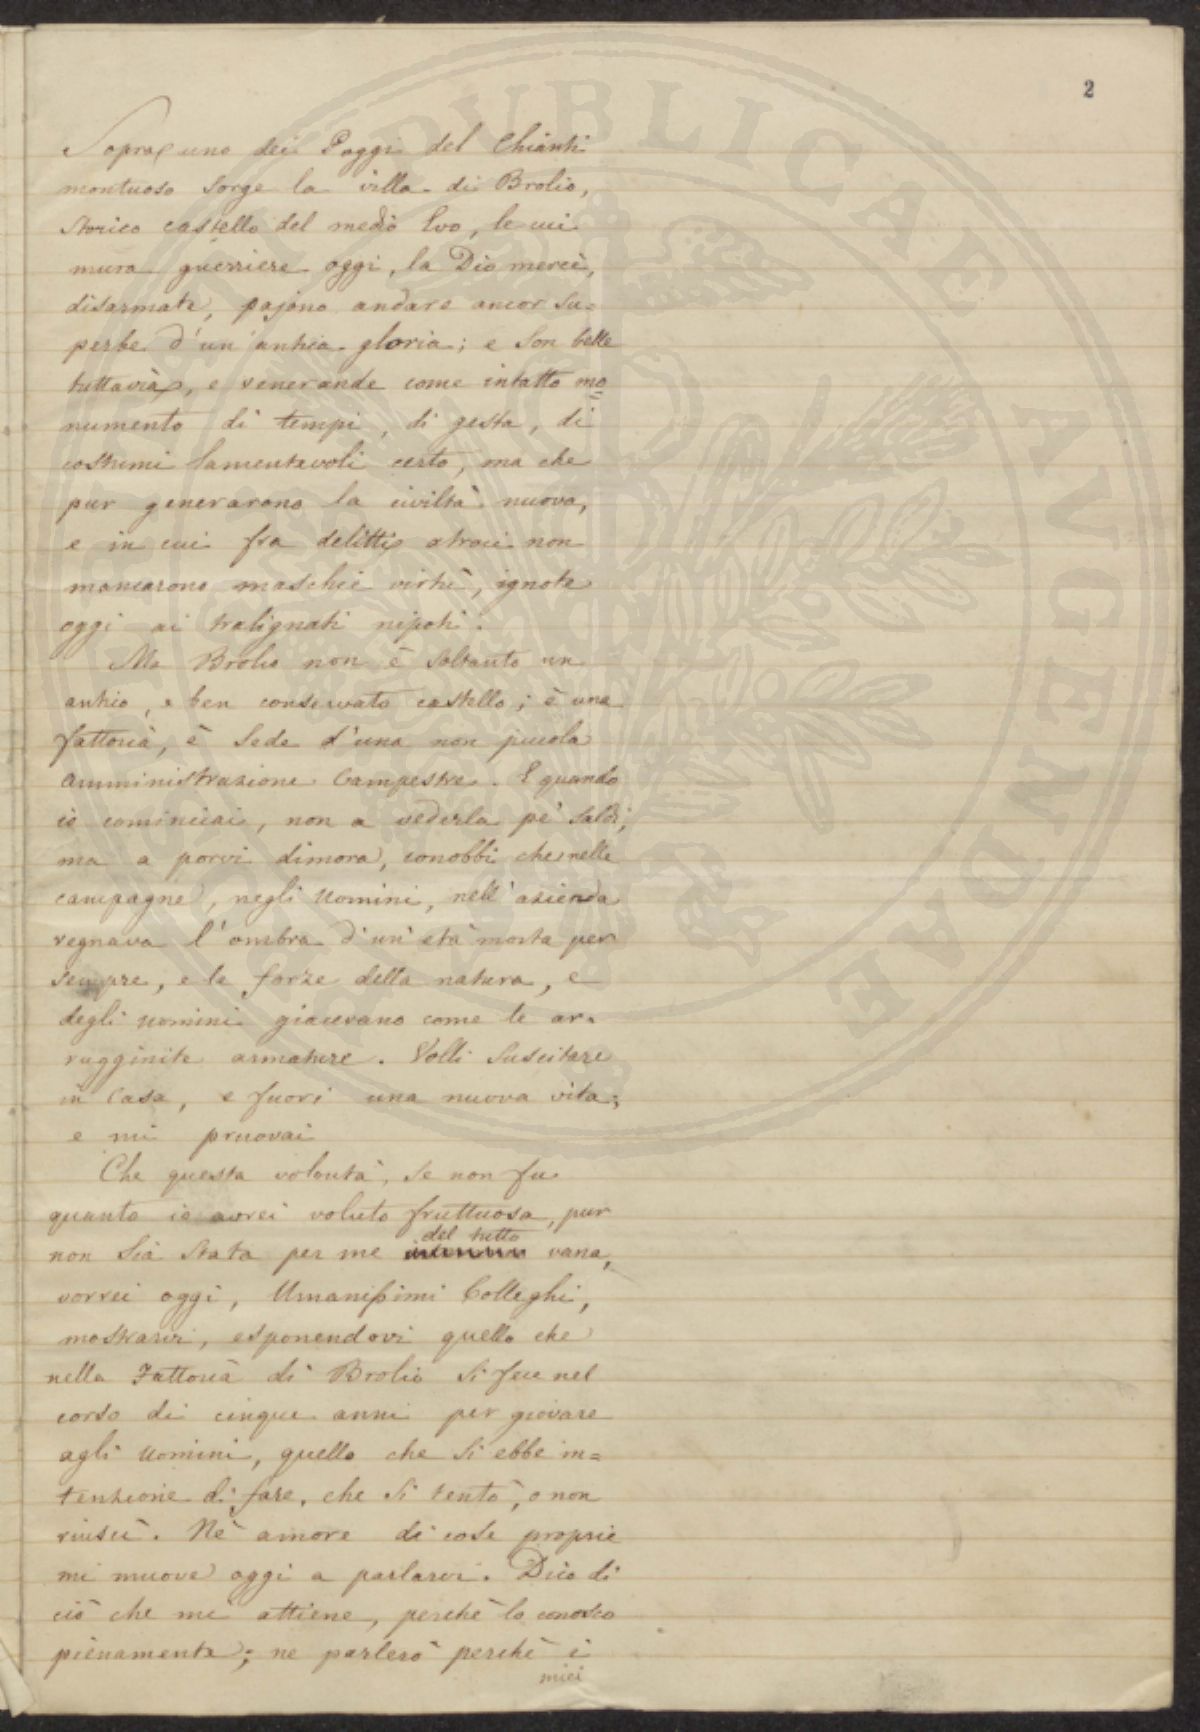 2
Sopra uno dei Poggi del Chianti
montuoso sorge la villa di Brolio,
storico castello del medio Evo, le cui
mura guerriere oggi, la Dio mercè,
disarmate, pajono andare ancor su=
perbe d'un' antica gloria; e son belle
tuttavia, e venerande come intatto mo=
numento di tempi, di gesta, di
costumi lamentevoli certo, ma che
pur generarono la civiltà nuova,
e in cui fra delitti atroci non
mancarono maschie virtù, ignote
oggi ai tralignati nipoti.
Ma Brolio non è soltanto un
antico, e ben conservato castello; è una
fattoria, è sede d'una non piccola
amministrazione Campestre. E quando
io cominciai, non a vederla pe' saldi,
ma a porvi dimora, conobbi che nelle
campagne, negli uomini, nell'azienda
regnava l'ombra d'un' età morta per
sempre, e le forze della natura, e
degli uomini giacevano come le ar=
rugginite armature. Volli suscitare
in casa, e fuori una nuova vita;
e mi pruovai
Che questa volontà, se non fu
quanto io avrei voluto fruttuosa, pur
del tutto
non sia stata per me vana,
vorrei oggi, Umanissimi Colleghi,
mostrarvi, esponendovi quello che
nella Fattoria di Brolio si fece nel
corso di cinque anni per giovare
agli uomini, quello che si ebbe in=
tenzione di fare, che si tentò, o non
riuscì. Nè amore di cose proprie
mi muove oggi a parlarvi. Dico di
ciò che mi attiene, perchè lo conosco
pienamente; ne parlerò perchè i
miei
PUBLICAE AUGENDAE